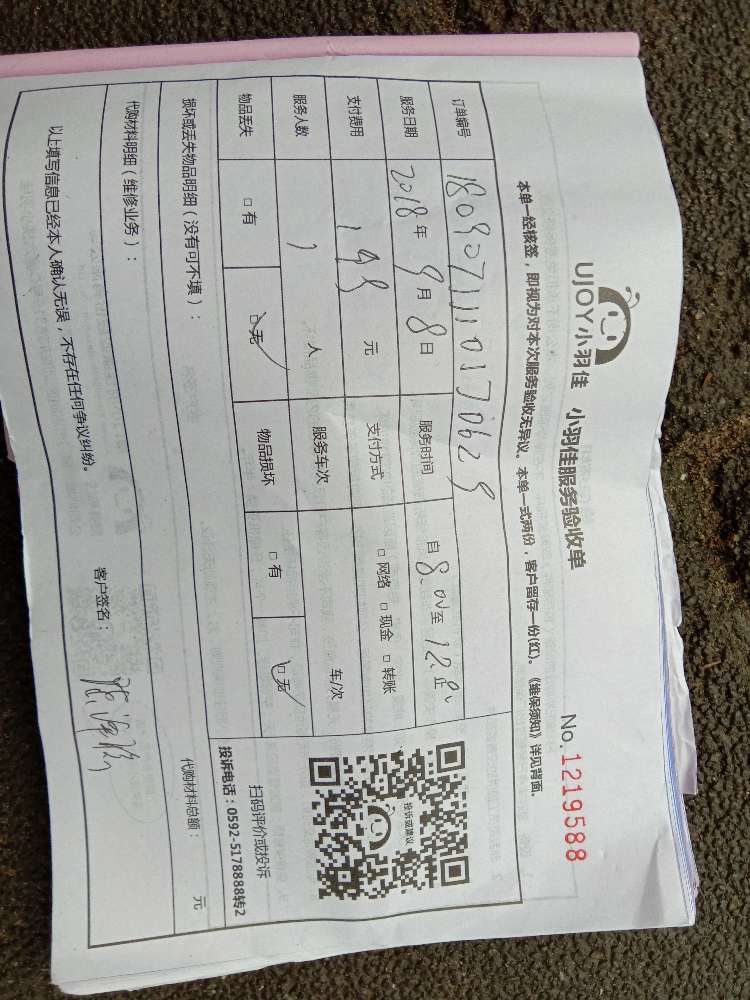 UJOY小羽佳 小羽佳服务验收单 No.1219588
本单一经核签，即视为对本次服务验收无异议。本单一式两份，客户留存一份(红)。《维保须知》详见背面。
订单编号
服务日期 2018年9月8日 服务时间 自8:00至12:止
支付费用 198元 支付方式 □网络 □现金 □转账
服务人数 1人 服务车次 车/次
物品丢失 □有 □无 物品损坏 □有 □无
投诉或建议
扫码评价或投诉
投诉电话：0592-5178888转2
损坏或丢失物品明细（没有可不填）：
代购材料明细（维修业务）： 代购材料总额： 元
以上填写信息已经本人确认无误，不存在任何争议纠纷。
客户签名：